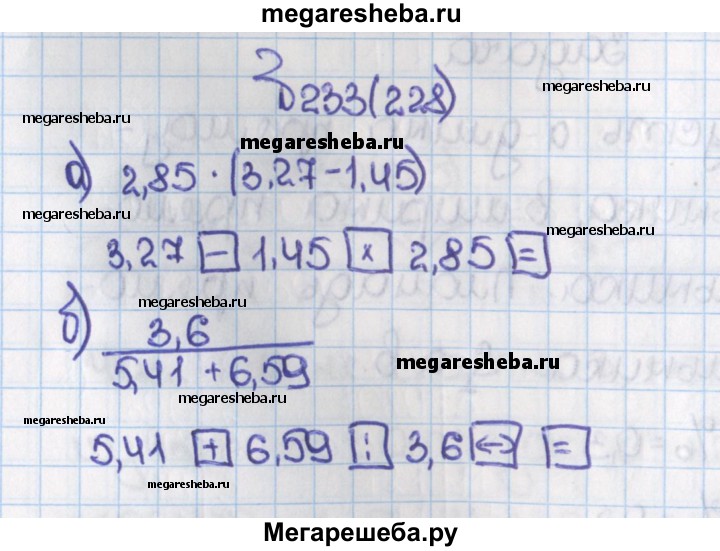 megaresheba.ru
З 233(228)
megaresheba.ru
megaresheba.ru
megaresheba.ru
а) 2,85 · (3,27 - 1,45)
megaresheba.ru
megaresheba.ru
3,27 [-] 1,45 [x] 2,85 [=]
megaresheba.ru
б) 3,6
5,41 + 6,59
megaresheba.ru
megaresheba.ru
megaresheba.ru
5,41 [+] 6,59 [:] 3,6 [<->] [=]
megaresheba.ru
Мегарешеба.ру